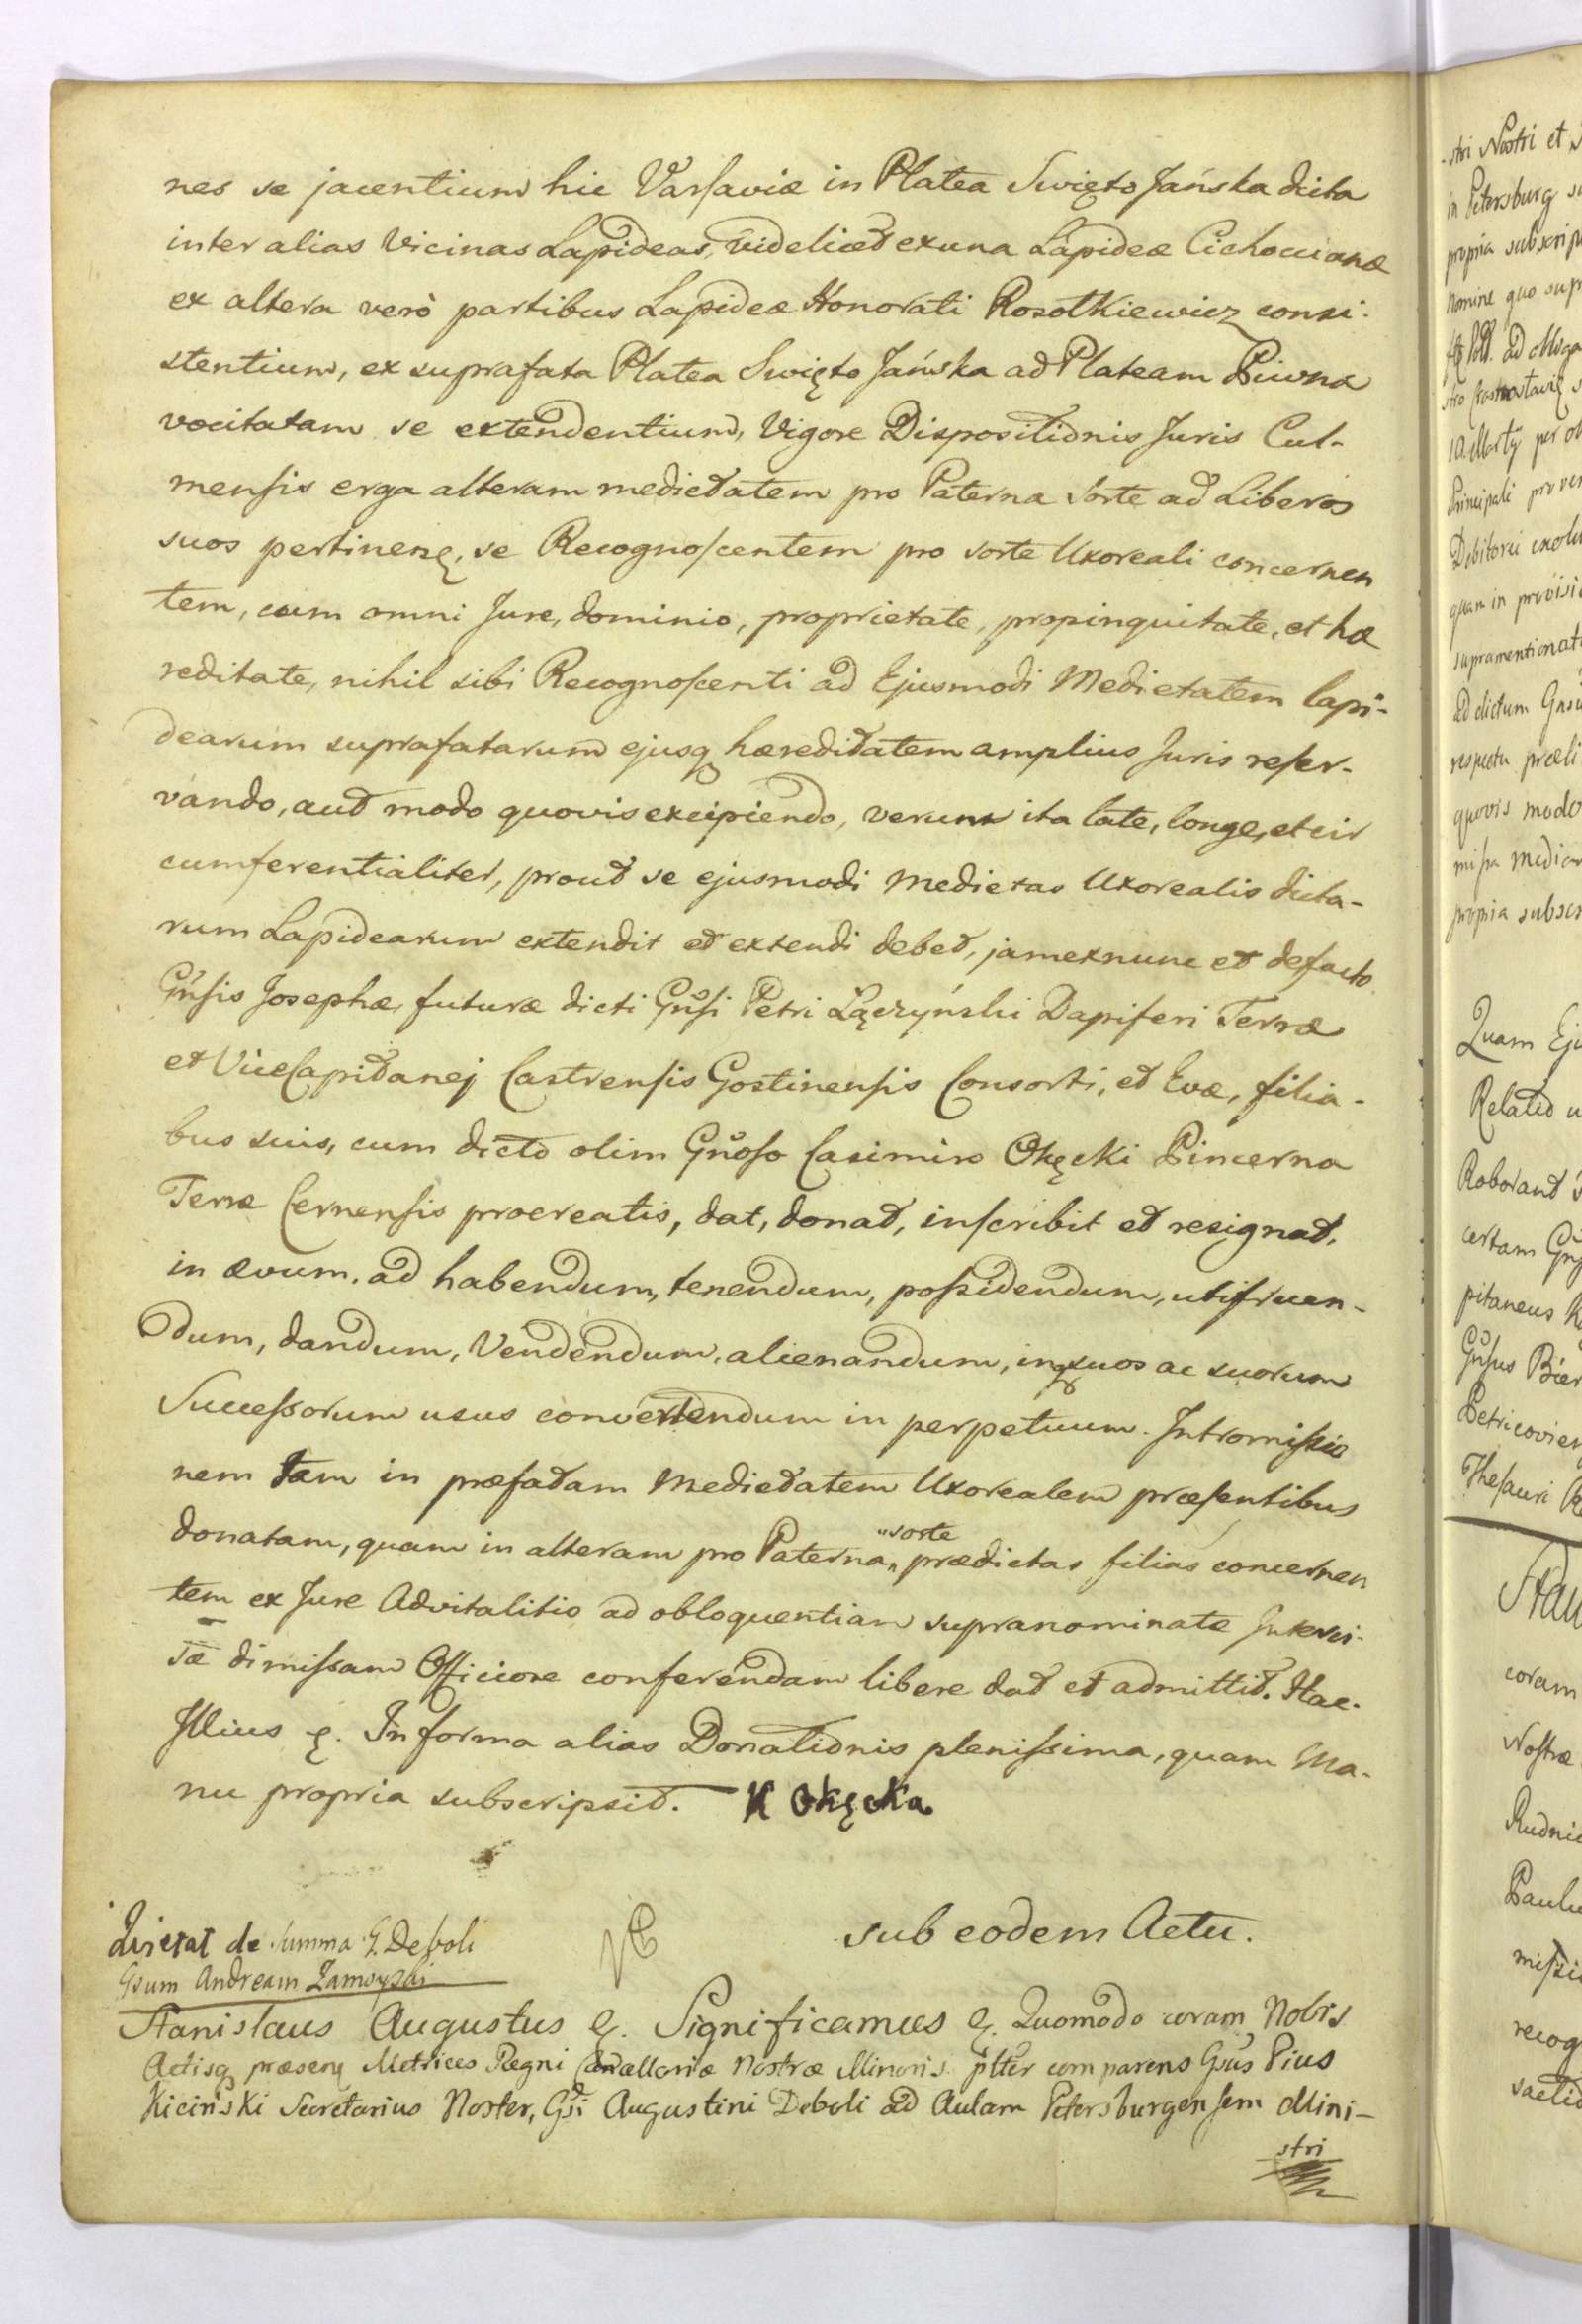 nes se jacentium hic Varsaviæ in Platea Swięto Jańska dicta
inter alias Vicinas Lapideas, videlicet ex una Lapideæ Cichoccianæ
ex altera verò partibus Lapideæ Honorati Rosołkiewicz consi-
stentium, ex suprafata Platea Swięto Jańska ad Plateam Piwna
vocitatam se extendentium, Vigore Dispositionis Juris Cul-
mensis erga alteram medietatem pro Paterna sorte ad Liberos
suos pertinenę, se Recognoscentem pro sorte Uxoreali concernen
tem, cum omni Jure, dominio, proprietate, propinquitate, et hæ
reditate, nihil sibi Recognoscenti ad Ejusmodi Medietatem lapi-
dearum suprafatarum ejusq hæreditatem amplius Juris reser-
vando, aut modo quovis excipiendo, verum ita late, longe, et cir
cumferentialiter, prout se ejusmodi Medietas Uxorealis dicta-
rum Lapidearum extendit et extendi debet, jam exnunc et defacto
Gnsis Josephæ, futuræ dicti Gnsi Petri Łączyński Dapiferi Terræ
et ViceCapitanej Castrensis Gostinensis Consorti, et Evæ, filia-
bus suis, cum dicto olim Gnoso Casimiro Okęcki Pincerna
Terræ Cernensis procreatis, dat, donat, inscribit et resignat,
in ævum. ad habendum, tenendum, possidendum, utifruen-
dum, dandum, Vendendum, alienandum, inq suos ac suorum
Successorum usus convertendum in perpetuum. Intromissio
nem tam in præfatam Medietatem Uxorealem præsentibus
donatam, quam in alteram pro Paterna "sorte" prædictas filias concernen
tem ex Jure Advitalitio ad obloquentiam supranominatæ Inscri-
dimissam Officiose conferendam libere dat et admittit. Hac.
Illius ę. In forma alias Donationis plenissima, quam Ma-
nu propria subscripsit. K Okęcka
sub eodem Actu.
Quietat de Summa G. Deboli
Gsum Andream Zamoyski
Stanislaus Augustus ę. Significamus ę. Quomodo coram Nobis
Actisq præsenę Metrices Regni Cancellariæ Nostræ Minoris pltér comparens Gsus Pius
Kiciński Secretarius Noster, Gsi Augustini Deboli ad Aulam Petersburgensem Mini-
stri
-stri Nostri et
in Petersburg
propria
Nomine quo
ad
10 Martij per
Principali
Debitorei
quam in
supramentionat
ad dictum
respectu
quovis modo
propria
Quam
Relatio
Roborand
certam
pitaneus
Gnsus
Petricovien
Thesauri
coram
Nostræ
Rudni
recog